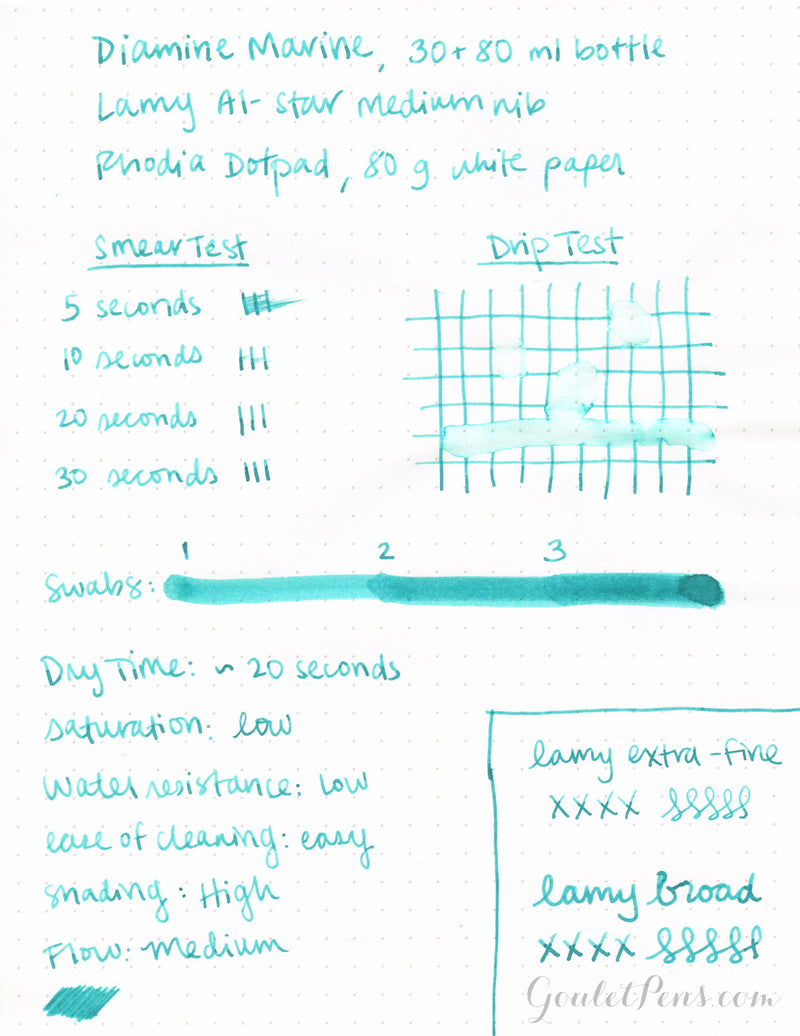 Diamine Marine, 30+80 ml bottle
Lamy Al-Star medium nib
Rhodia Dotpad, 80 g white paper
Smear Test
5 seconds
10 seconds
20 seconds
30 seconds
Drip Test
1 2 3
Swabs:
Dry Time: ~ 20 seconds
saturation: low
Water resistance: Low
ease of cleaning: easy
shading: High
Flow: medium
lamy extra-fine
xxxx sssss
lamy broad
xxxx sssss
GouletPens.com